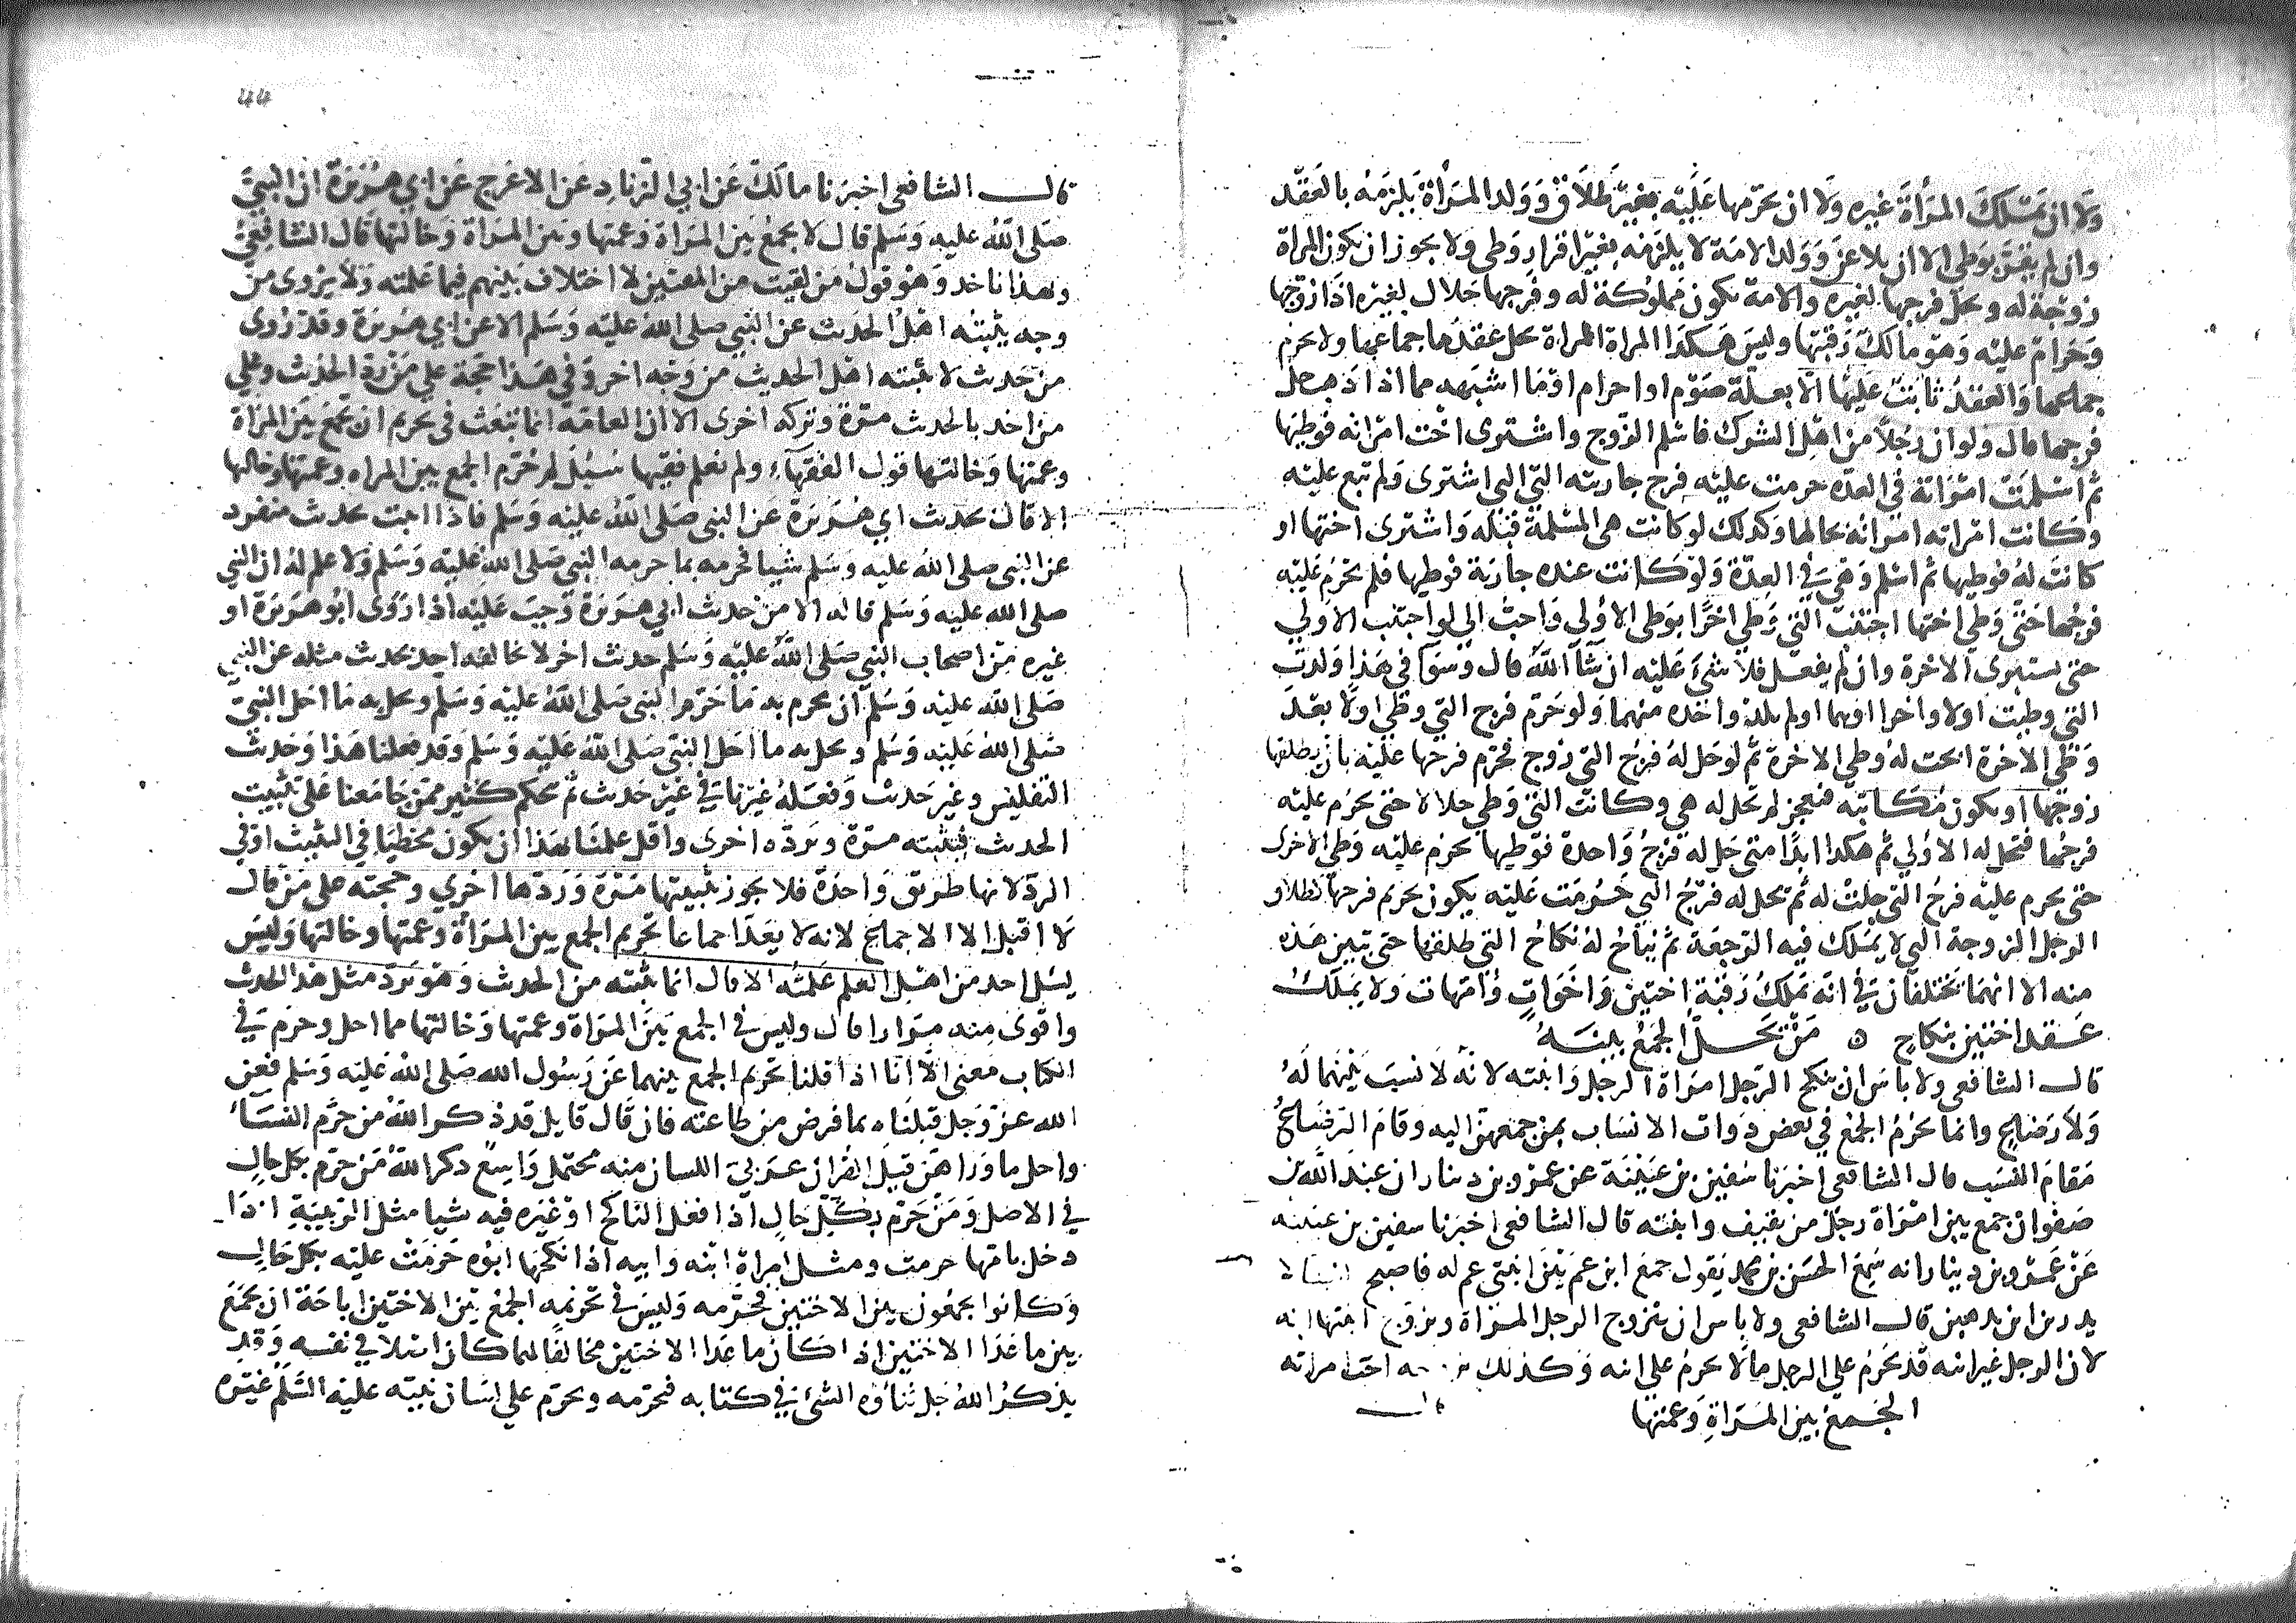 ولا ان تملك المرأة غيره ولا ان يحرمها عليه بغير طلاق وولد المرأة يلزمه بالعقد
وان لم يقر بوطي الا ان يلاعن وولد الامة لا يلزمه بغير اقرار وطي ولا يجوز ان يكون المراة
زوجة له ويحل فرجها لغيره والامة يكون مملوكة له وفرجها حلال لغيره اذا زوجها
وحرام عليه وهو مالك رقبتها وليس هكذا المراة المراة يحل عقدها جماعها ولا يحرم
جماعها والعقد ثابت عليها الا بعلة صوم او احرام او ما اشبهه مما اذا ذهب حل
فرجها قال ولو ان رجلا من اهل الشرك فاسلم الزوج واشترى اخت امراته فوطيها
ثم اسلمت امراته في العدة حرمت عليه فرج جاريته التي التي اشترى ولم تبع عليه
وكانت امراته امراته بحالها وكذلك لو كانت هي المسلمة قبله واشترى اختها او
كانت له فوطيها ثم اسلم وهي في العدة ولو كانت عنده جارية فوطيها فلم يحرم عليه
فرجها حتى وطي اختها اجتنب التي وطي اخرا بوطي الاولى واحب الي لو اجتنب الاولى
حتى يستبرى الاخرة وان لم يفعل فلا شيء عليه ان شاء الله قال وسوا في هذا ولدت
التي وطيت اولا واخرا او هما او لم تلد واحده منهما ولو حرم فرج التي وطي اولا بعد
وطي الاخرة ابحت له وطي الاخرة ثم لو حل له فرج التي زوج فحرم فرجها عليه بان يطلقها
زوجها او يكون مكاتبه فتعجز لم تحل له هي وكانت التي وطي حلالا حتى يحرم عليه
فرجها فتحل له الاولى ثم هكذا ابدا متى حل له فرج واحدة فوطيها يحرم عليه وطي الاخرى
حتى يحرم عليه فرج التي حلت له ثم تحل له فرج التي حرمت عليه يكون يحريم فرجها كطلاق
الرجل الزوجة التي لا يملك فيه الرجعة ثم نباح له نكاح التي طلقها حتى تبين هذه
منه الا انهما تختلفان في انه يملك رقبة اختين واخوات وامهات ولا يملك
عقد اختين بنكاح ٥ من تحل الجمع بينه
قال الشافعي ولا باس ان ينكح الرجل امراة الرجل وابنته لانه لا نسب بينهما له
ولا رضاع وانما يحرم الجمع في بعض ذوات الانساب بمن جمعهن اليه وقام الرضاع
مقام النسب قال الشافعي اخبرنا سفين بن عيينة عن عمرو بن دينار ان عبد الله بن
صفوان جمع بين امراة رجل من ثقيف وابنته قال الشافعي اخبرنا سفين بن عيينه
عن عمرو بن دينار انه سمع الحسن بن محمد يقول جمع ابن عم لي بين ابنتي عم له فاصبح النسا لا
يدرين اين يذهبن قال الشافعي ولا باس ان يتزوج الرجل المراة ويزوج ابنتها ابنه
لان الرجل غير ابنه قد يحرم على الرجل ما لا يحرم على ابنه وكذلك اخت امراته
الجمع بين المراة وعمتها
قال
٤٤
قال الشافعي اخبرنا مالك عن ابي الزناد عن الاعرج عن ابي هريرة ان النبي
صلى الله عليه وسلم قال لا يجمع بين المراة وعمتها وبين المراة وخالتها قال الشافعي
وبهذا ناخذ وهو قول من لقيت من المفتين لا اختلاف بينهم فيما علمته ولا يروى من
وجه يثبته اهل الحديث عن النبي صلى الله عليه وسلم الا عن ابي هريرة وقد روى
من حديث لا يثبته اهل الحديث من وجه اخر وفي هذا حجة على من رد الحديث وعلى
من اخذ بالحديث مرة وتركه اخرى الا ان العامة انما تبعت في تحريم ان يجمع بين المراة
وعمتها وخالتها قول الفقهاء ولم نعلم فقيها سئل لم حرم الجمع بين المراه وعمتها وخالتها
الا قال بحديث ابي هريرة عن النبي صلى الله عليه وسلم فاذا اثبت بحديث منفرد
عن النبي صلى الله عليه وسلم شيا فحرمه بما حرمه النبي صلى الله عليه وسلم ولا علم له ان النبي
صلى الله عليه وسلم قاله الا من حديث ابي هريرة وجب عليه اذا روى ابو هريرة او
غيره من اصحاب النبي صلى الله عليه وسلم حديث اخر لا يخالفه احد بحديث مثله عن النبي
صلى الله عليه وسلم ان يحرم به ما حرم النبي صلى الله عليه وسلم ويحل به ما احل النبي
صلى الله عليه وسلم ويحل به ما احل النبي صلى الله عليه وسلم وقد فعلنا هذا وحديث
التفليس وغير حديث وفعله غيرنا في غير حديث ثم يحكم كثير ممن جامعنا على تثبيت
الحديث فيثبته مرة ويرده اخرى واقل علمنا بهذا ان يكون مخطيا في التثبيت او في
الرد لانها طريق واحدة فلا يجوز تثبيتها مرة وردها اخرى وحجته على من قال
لا اقبل الا الاجماع لانه لا يعد اجماعا تحريم الجمع بين المرأة وعمتها وخالتها وليس
يسل احد من اهل العلم علمته الا قال انما نثبته من الحديث وهو يرد مثل هذا الحديث
واقوى منه مرارا قال وليس في الجمع بين المراة وعمتها وخالتها مما احل وحرم في
الكتاب معنى الا انا اذا قلنا تحريم الجمع بينهما عن رسول الله صلى الله عليه وسلم فعن
الله عز وجل قبلناه بما فرض من طاعته فان قال قايل قد ذكر الله من حرم النساء
واحل ما وراهن قيل القران عربي اللسان منه محتمل واسع ذكر الله من حرم بكل حال
في الاصل ومن حرم بكل حال اذا فعل الناكح او غيره فيه شيا مثل الربيبة اذا
دخل بامها حرمت ومثل امراة ابنه وابيه اذا نكحها ابوه حرمت عليه بكل حال
وكانوا يجمعون بين الاختين فحرمه وليس في تحريمه الجمع بين الاختين اباحة ان يجمع
بين ما عدا الاختين اذا كان ما عدا الاختين مخالفا لما كان اصلا في نفسه وقد
يذكر الله جل ثناؤه الشئ في كتابه فيحرمه ويحرم على لسان نبيه عليه السلم غيره